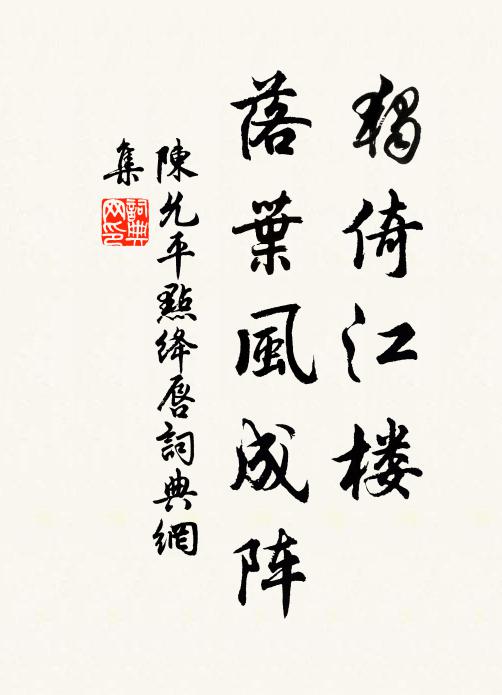 獨倚江楼
落葉風成阵
陳允平點绛唇詞典網
集
詞典
网印